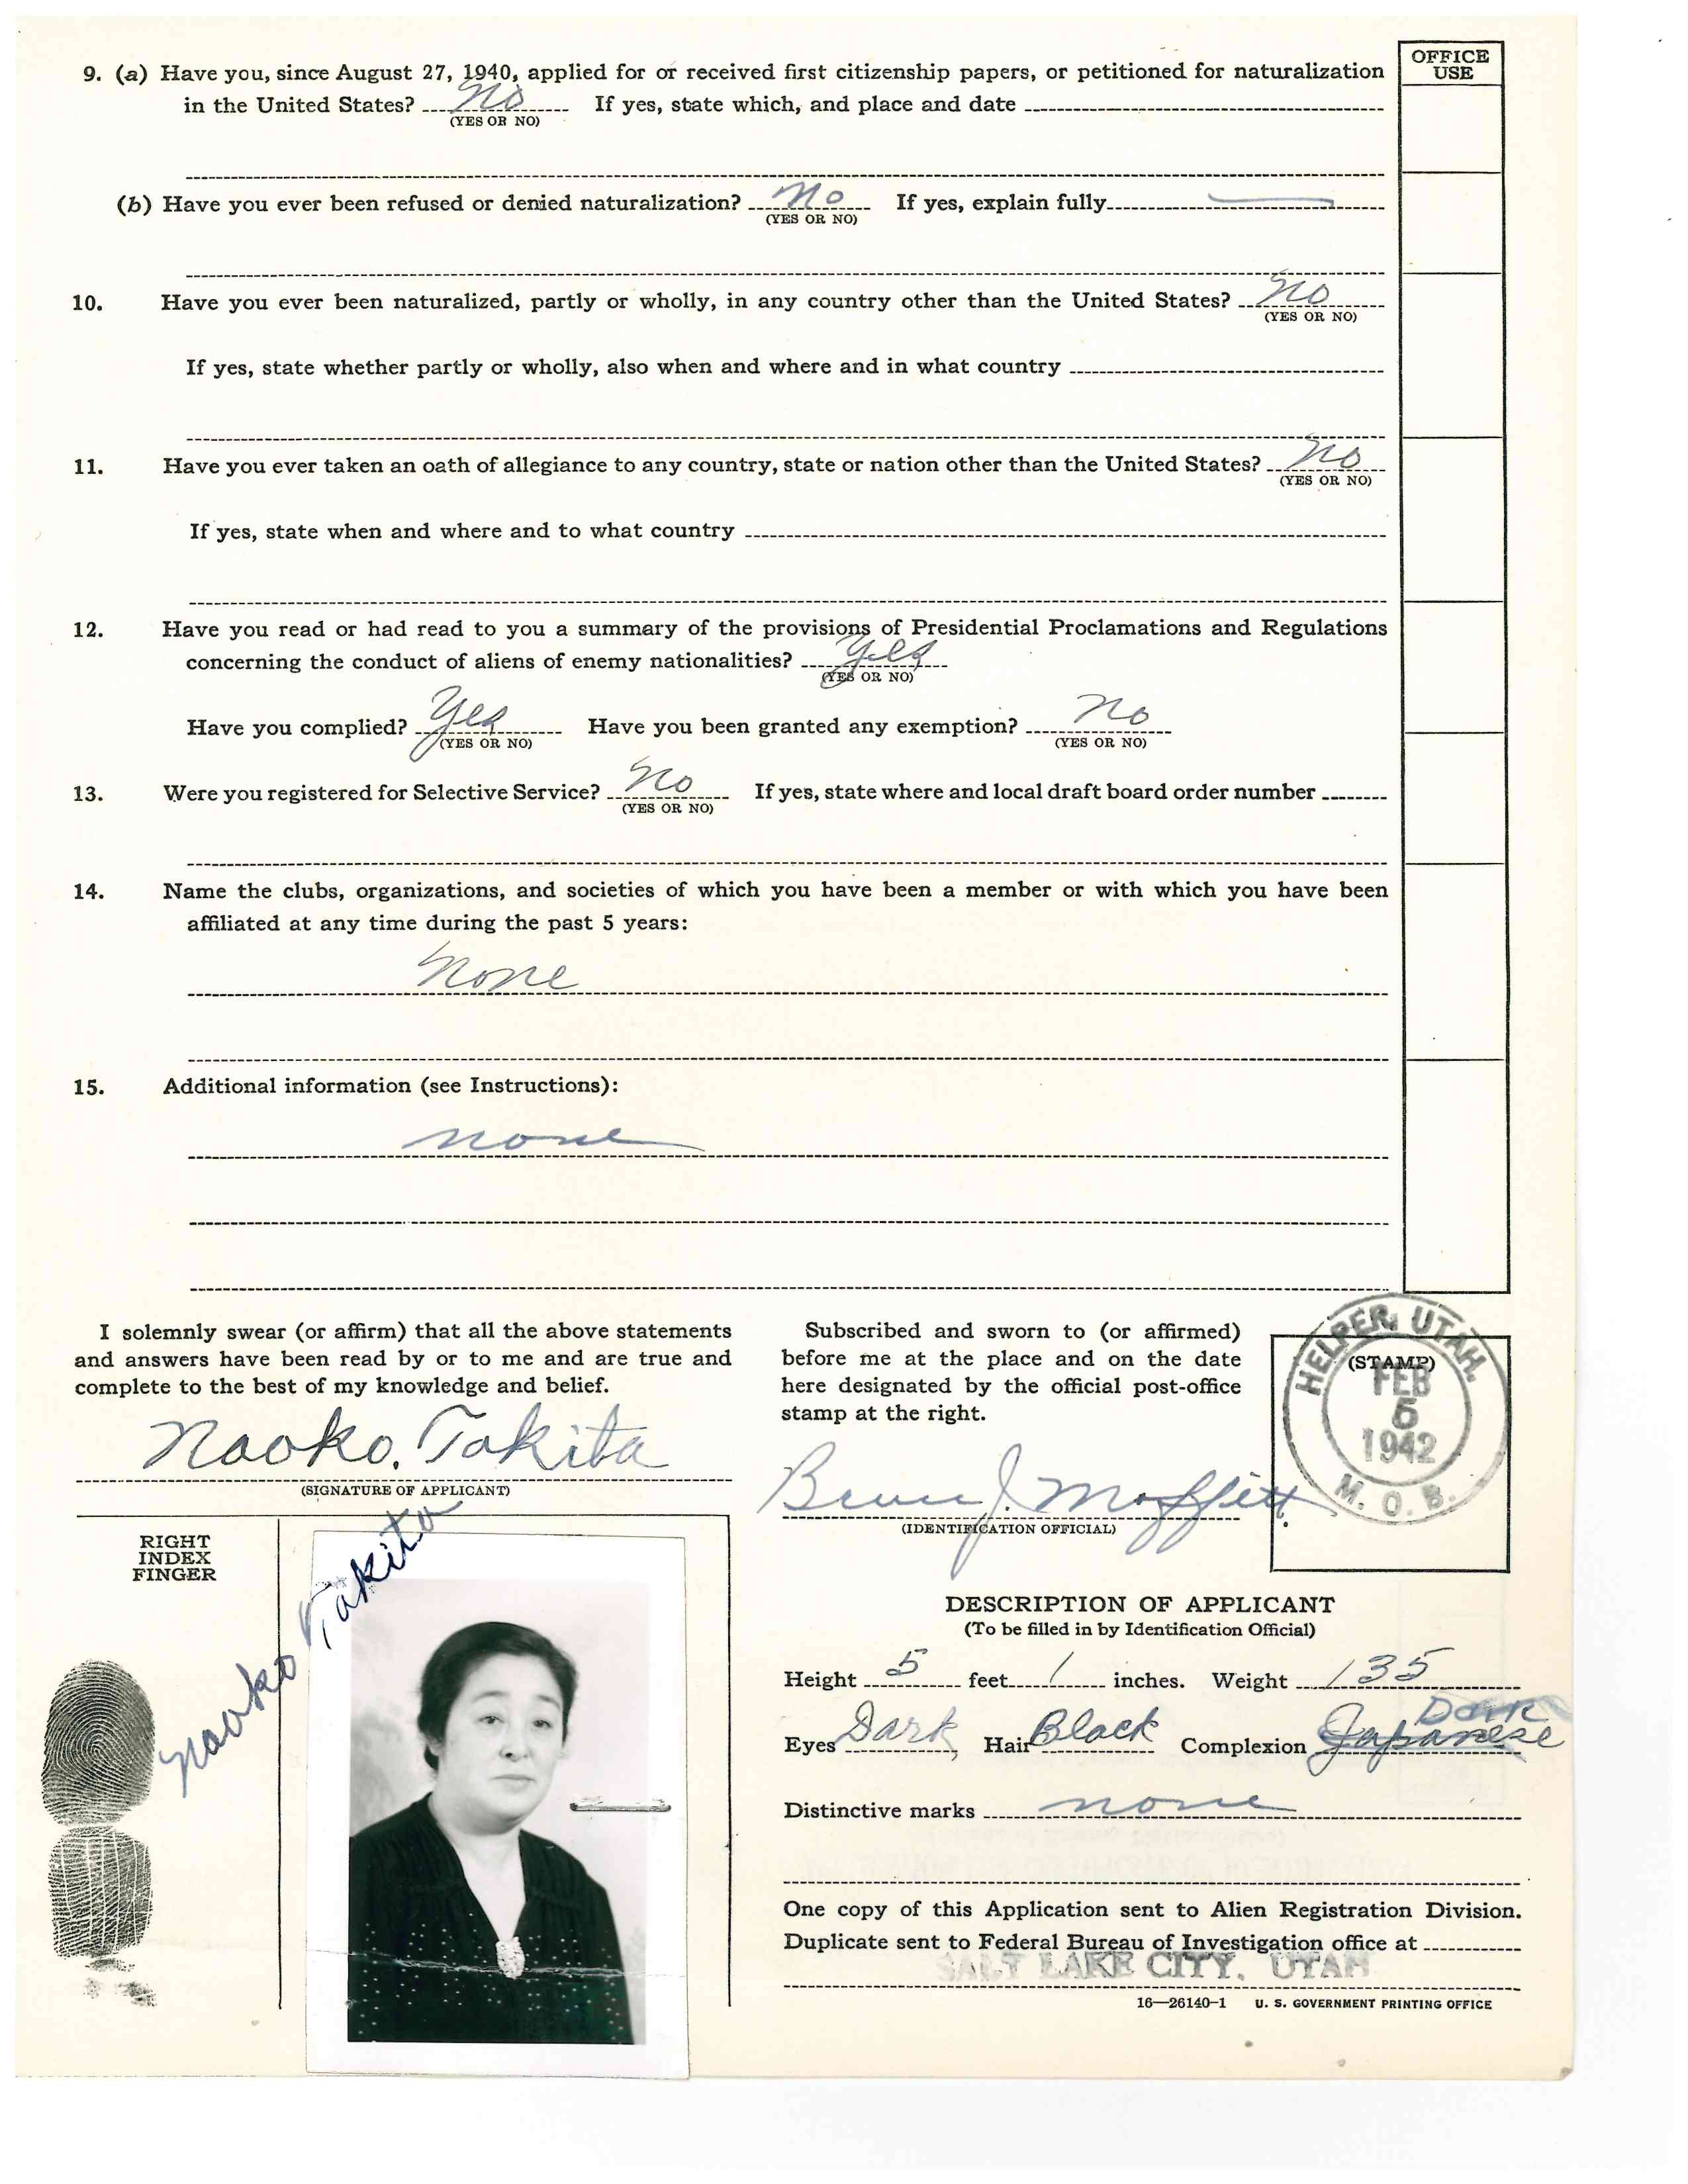 OFFICE
USE
9. (a) Have you, since August 27, 1940, applied for or received first citizenship papers, or petitioned for naturalization
in the United States? No If yes, state which, and place and date
(YES OR NO)
(b) Have you ever been refused or denied naturalization? No If yes, explain fully
(YES OR NO)
10. Have you ever been naturalized, partly or wholly, in any country other than the United States? No
(YES OR NO)
If yes, state whether partly or wholly, also when and where and in what country
11. Have you ever taken an oath of allegiance to any country, state or nation other than the United States? No
(YES OR NO)
If yes, state when and where and to what country
12. Have you read or had read to you a summary of the provisions of Presidential Proclamations and Regulations
concerning the conduct of aliens of enemy nationalities? Yes
(YES OR NO)
Have you complied? Yes Have you been granted any exemption? No
(YES OR NO) (YES OR NO)
13. Were you registered for Selective Service? No If yes, state where and local draft board order number
(YES OR NO)
14. Name the clubs, organizations, and societies of which you have been a member or with which you have been
affiliated at any time during the past 5 years:
None
15. Additional information (see Instructions):
none
I solemnly swear (or affirm) that all the above statements
and answers have been read by or to me and are true and
complete to the best of my knowledge and belief.
Naoko. Takita
(SIGNATURE OF APPLICANT)
Subscribed and sworn to (or affirmed)
before me at the place and on the date
here designated by the official post-office
stamp at the right.
Bruce J. Moffitt
(IDENTIFICATION OFFICIAL)
(STAMP)
HELPER, UTAH.
FEB
5
1942
M. O. B.
RIGHT
INDEX
FINGER
Naoko Takita
DESCRIPTION OF APPLICANT
(To be filled in by Identification Official)
Height 5 feet 1 inches. Weight 135
Dark
Eyes Dark, Hair Black Complexion Japanese
Distinctive marks none
One copy of this Application sent to Alien Registration Division.
Duplicate sent to Federal Bureau of Investigation office at
SALT LAKE CITY, UTAH
16—26140-1 U. S. GOVERNMENT PRINTING OFFICE